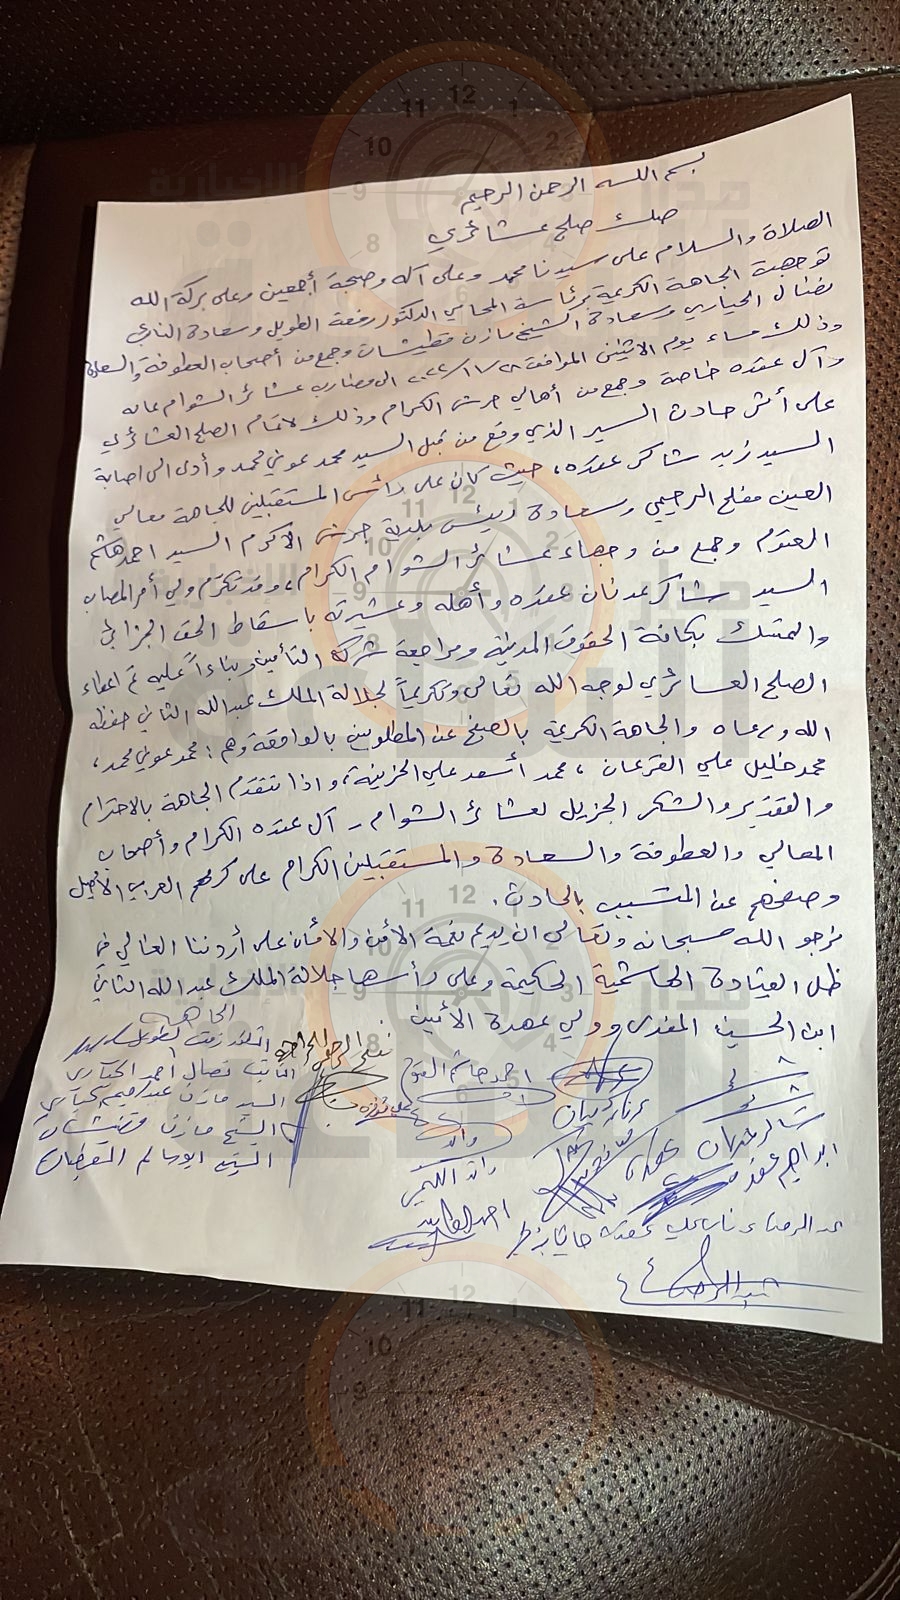 بسم الله الرحمن الرحيم
صك صلح عشائري
الصلاة والسلام على سيدنا محمد وعلى آله وصحبه أجمعين وعلى بركة الله
توجهت الجاهة الكريمة برئاسة المحامي الدكتور رفعت الطويل وسعادة النائب
نضال الحياري وسعادة الشيخ مازن قطيشات وجمع من أصحاب العطوفة والسعادة
وذلك مساء يوم الاثنين الموافق ٢٠٢٢/١١/٢٨ الى مضارب عشائر الشوام عامه
وآل عقده خاصة وجمع من أهالي جرش الكرام وذلك لاتمام الصلح العشائري
على أثر حادث السير الذي وقع من قبل السيد محمد عوني محمد وأدى الى اصابة
السيد زيد شاكر عقده، حيث كان على رأس المستقبلين للجاهة معالي
العين مفلح الرحيمي وسعادة رئيس بلدية جرش الأكرم السيد احمد هاشم
العتوم وجمع من وجهاء عشائر الشوام الكرام، وقد تكرم ولي أمر المصاب
السيد شاكر عدنان عقده وأهله وعشيرته باسقاط الحق الجزائي
والتمسك بكافة الحقوق المدنية ومراجعة شركة التأمين وبناءاً عليه تم اعفاء
الصلح العشائري لوجه الله تعالى وتكريماً لجلالة الملك عبدالله الثاني حفظه
الله ورعاه والجاهة الكريمة بالصفح عن المطلوبين بالموافقة وهم: محمد عوني محمد،
محمد خليل علي القرعان، محمد أسعد علي الخزينة، واذا تتقدم الجاهة بالاحترام
والتقدير والشكر الجزيل لعشائر الشوام - آل عقده الكرام وأصحاب
المعالي والعطوفة والسعادة والمستقبلين الكرام على كرمهم العربي الأصيل
وصفحهم عن المتسبب بالحادث.
نرجو الله سبحانه وتعالى ان يديم نعمة الأمن والأمان على أردننا الغالي في
ظل القيادة الهاشمية الحكيمة وعلى رأسها جلالة الملك عبدالله الثاني
ابن الحسين المفدى وولي عهده الأمين
الجاهة
الدكتور رفعت الطويل
النائب نضال احمد الحياري
السيد مازن عبدالحليم الحياري
الشيخ مازن قطيشات
السيد ابو سالم
مفلح الرحيمي
احمد هاشم العتوم
ابراهيم عقده
مدار الساعة الاخبارية